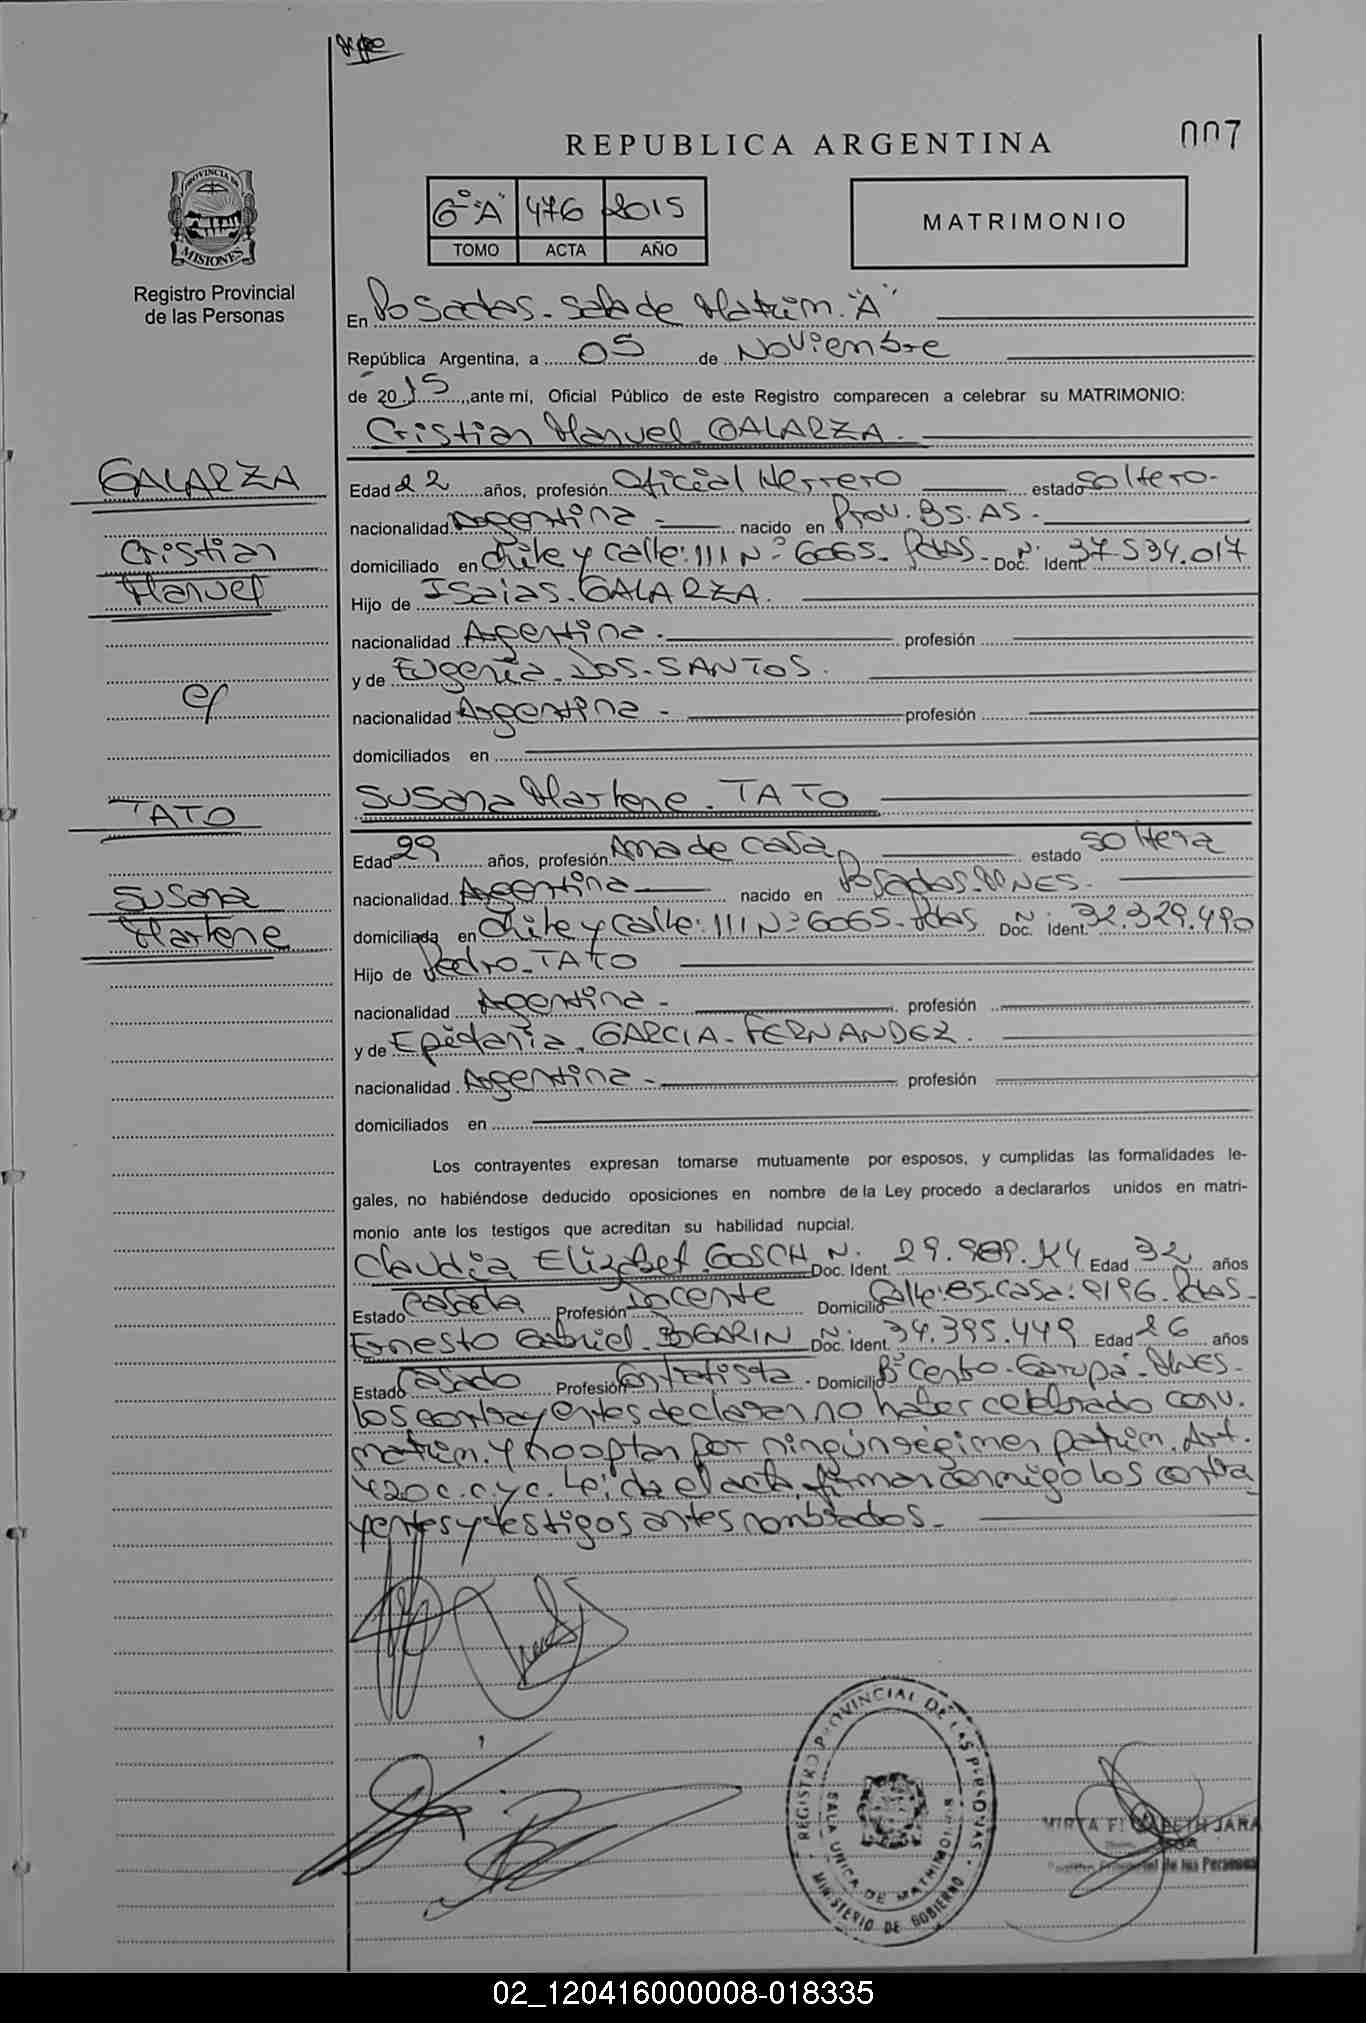 007
REPUBLICA ARGENTINA
PROVINCIA DE
MISIONES
Registro Provincial
de las Personas
6º "A" 476 2015
TOMO ACTA AÑO
MATRIMONIO
En Posadas - Sala de Matrim. "A"
República Argentina, a 05 de Noviembre
de 2015, ante mi, Oficial Público de este Registro comparecen a celebrar su MATRIMONIO:
Cristian Manuel GALARZA.
GALARZA
Cristian
Manuel
c/
TATO
Susana
Marlene
Edad 22 años, profesión Oficial Herrero estado Soltero-
nacionalidad Argentina - nacido en Prov. BS. AS.-
domiciliado en Chile y calle: 111 Nº 6065- Pdas- Doc. Ident. Nº: 37.534.017
Hijo de Isaias. GALARZA.
nacionalidad Argentina. profesión
y de Eugenia. DOS-SANTOS.
nacionalidad Argentina - profesión
domiciliados en
Susana Marlene. TATO
Edad 29 años, profesión Ama de casa estado Soltera
nacionalidad Argentina nacido en Posadas. MNES.
domiciliada en Chile y calle: 111 Nº 6065- Pdas Doc. Ident. Nº: 32.329.490
Hijo de Pedro-TATO
nacionalidad Argentina- profesión
y de Epifania. GARCIA-FERNANDEZ.
nacionalidad Argentina- profesión
domiciliados en
Los contrayentes expresan tomarse mutuamente por esposos, y cumplidas las formalidades le-
gales, no habiéndose deducido oposiciones en nombre de la Ley procedo a declararlos unidos en matri-
monio ante los testigos que acreditan su habilidad nupcial.
Claudia Elizabet. GOSCH Doc. Ident. Nº: 29.989. Edad 32 años
Estado Casada Profesión Docente Domicilio Calle: 85. casa: 9196. Pdas-
Ernesto Gabriel. BEGARIN Doc. Ident. Nº: 34.395.449 Edad 26 años
Estado Casado Profesión Contratista. Domicilio Bº Cento. Garupá- MNES-
Los contrayentes declaran no haber celebrado conv.
matrim. y no optan por ningún régimen patrim. Art.
420 c.c.yc. Leida el acta, firman conmigo los contra
yentes y testigos antes nombrados.-
REGISTRO PROVINCIAL DE LAS PERSONAS
SALA UNICA DE MATRIMONIOS
MINISTERIO DE GOBIERNO
MIRTA ELIZABETH JARA
Provincial de las Personas
02_120416000008-018335